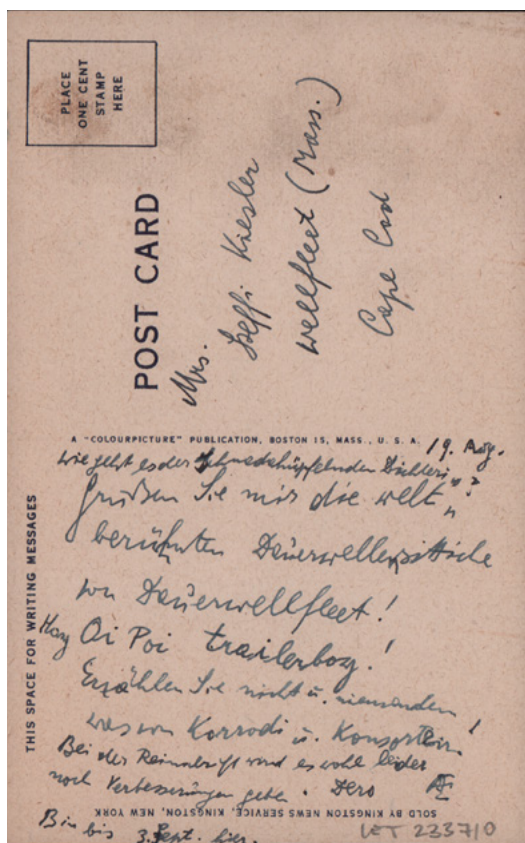 PLACE
ONE CENT
STAMP
HERE
POST CARD
Mrs.
Steffi Kiesler
Wellfleet (Mass.)
Cape Cod
A "COLOURPICTURE" PUBLICATION, BOSTON 15, MASS., U. S. A.
THIS SPACE FOR WRITING MESSAGES
19. Aug.
Wie geht es der Dichterin?
Grüßen Sie mir die welt-
berühmten Dauerwellensittiche
von Dauerwellfleet!
Oi Poi trailerboy!
Erzählen Sie nicht u. niemandem
was von Korrodi u. Konsorten!
Bei der Reinschrift wird es wohl leider
noch Verbesserungen geben. Dero
SOLD BY KINGSTON NEWS SERVICE, KINGSTON, NEW YORK
Bin bis 3. Sept. hier.
LET 2337/0